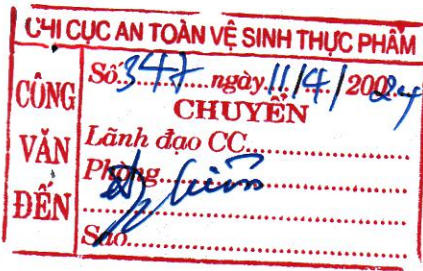 CHI CỤC AN TOÀN VỆ SINH THỰC PHẨM
CÔNG VĂN ĐẾN
Số 347 ngày 11/4/2024
CHUYỂN
Lãnh đạo CC
Phòng
Sao